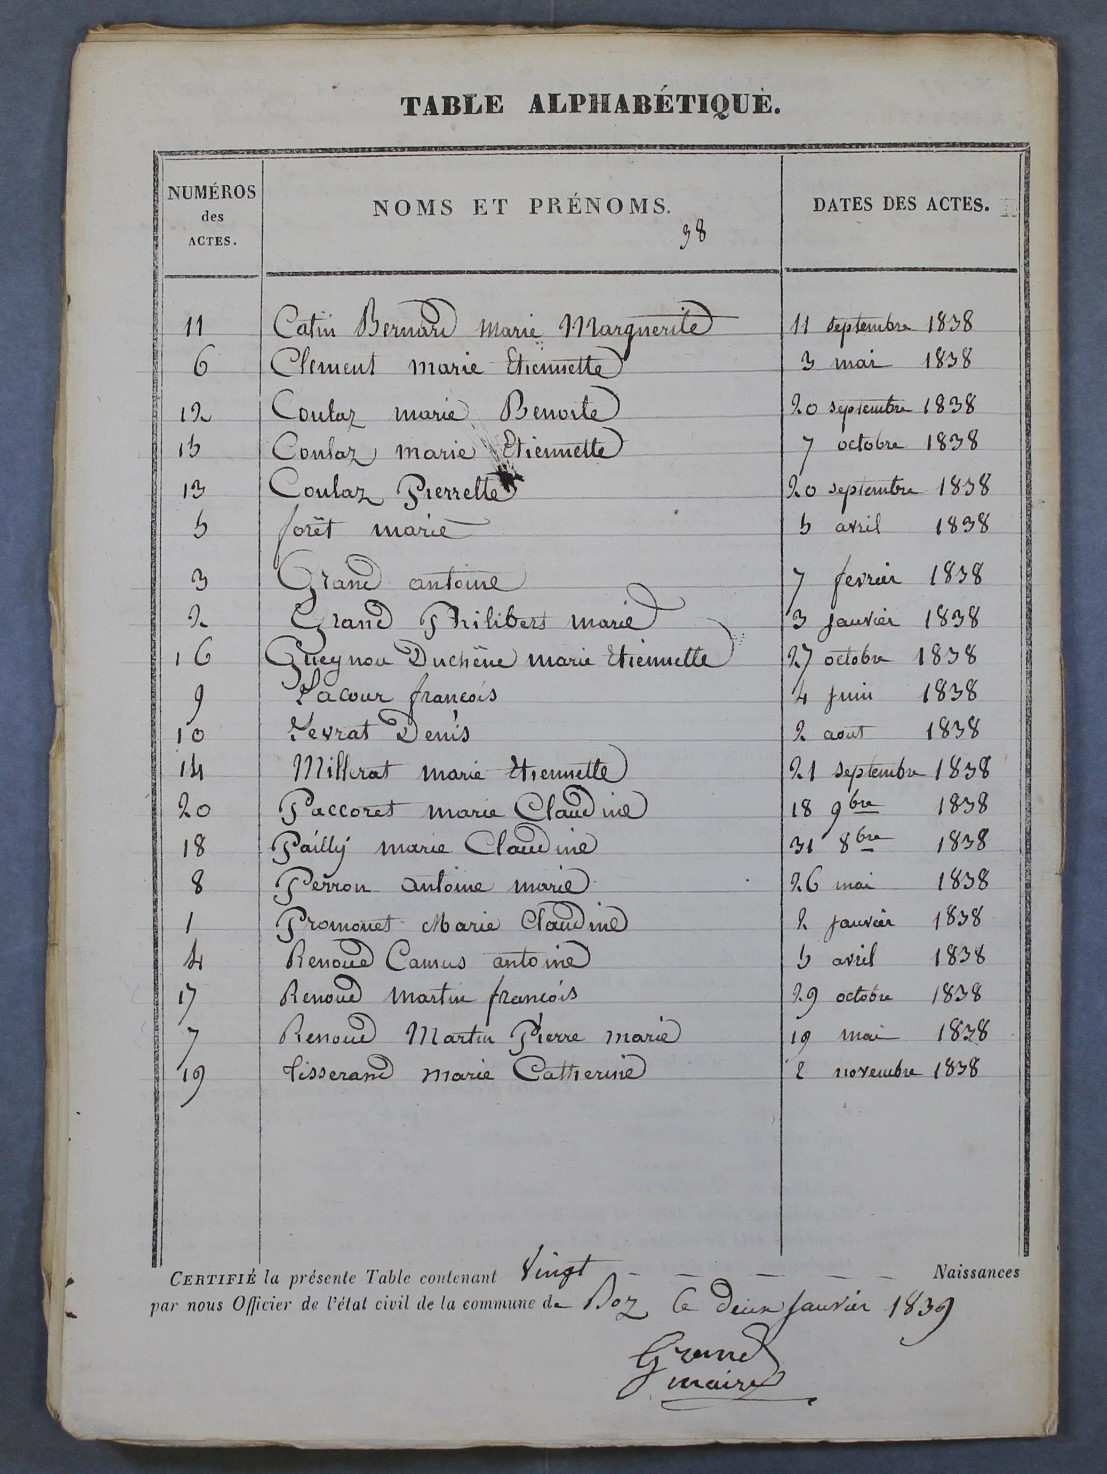 TABLE ALPHABÉTIQUE.
NUMÉROS des ACTES. NOMS ET PRÉNOMS. DATES DES ACTES.
38
11 Catin Bernard marie Marguerite 11 septembre 1838
6 Clement marie Etiennette 3 mai 1838
12 Coulaz marie Benoite 20 septembre 1838
15 Coulaz marie Etiennette 7 octobre 1838
13 Coulaz Pierrette 20 septembre 1838
5 forêt marie 5 avril 1838
3 Grand antoine 7 fevrier 1838
2 Grand Philibert marie 3 janvier 1838
16 Gueynou Duchêne marie Etiennette 27 octobre 1838
9 Lacour francois 4 juin 1838
10 Levrat Denis 2 aout 1838
14 Millerat marie Etiennette 21 septembre 1838
20 Paccoret marie Claudine 18 9bre 1838
18 Pailly marie Claudine 31 8bre 1838
8 Perron antoine marie 26 mai 1838
1 Promonet Marie Claudine 2 janvier 1838
4 Renoud Camus antoine 5 avril 1838
17 Renoud martin francois 29 octobre 1838
7 Renoud Martin Pierre marie 19 mai 1838
19 tisserand marie Catherine 2 novembre 1838
CERTIFIÉ la présente Table contenant Vingt Naissances
par nous Officier de l'état civil de la commune de Boz le deux janvier 1839
Grand
maire